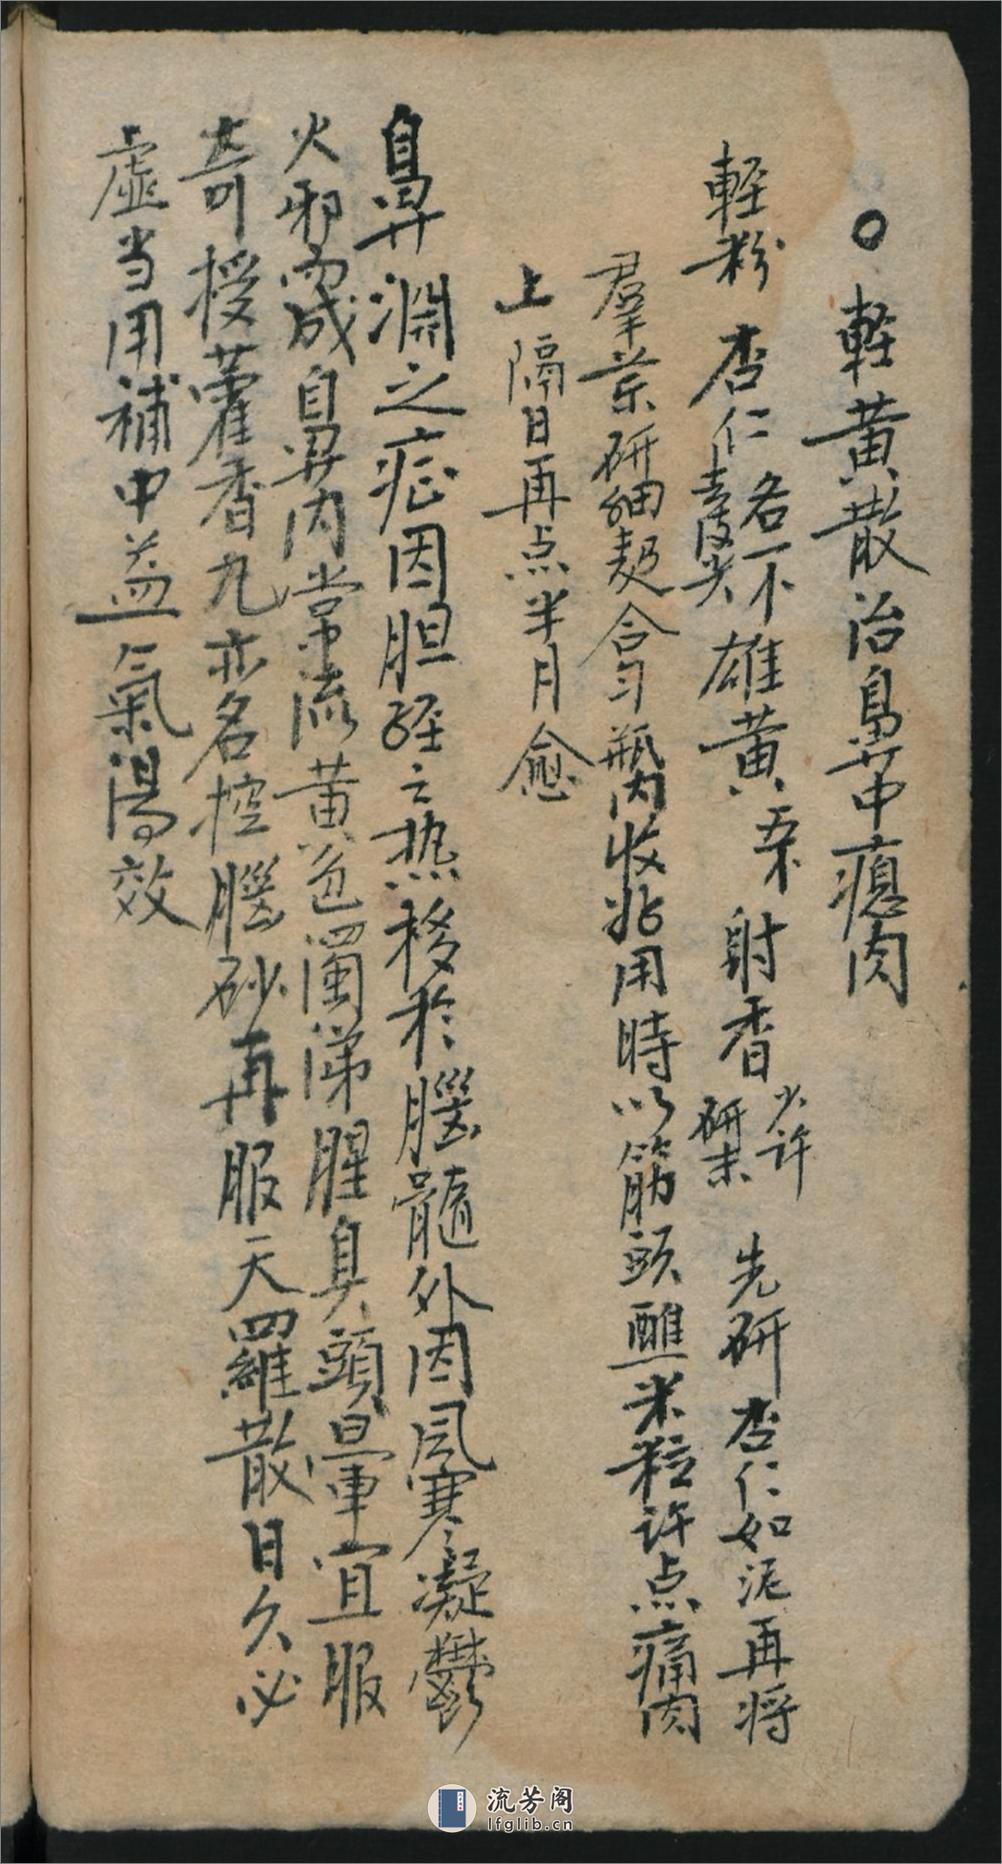 ○輕黄散治鼻中瘜肉
輕粉 杏仁 各一不 去皮尖 雄黄 五不 射香 少许 研末 先研杏仁如泥再将
羣藥研细越合匀瓶内收貯用時以筋頭醮米粒许点痛肉
上隔日再点半月愈
鼻渊之症因胆经之热移於腦髓外因風寒凝鬱
火邪而成鼻内常流黄色濁涕腥臭頭暈宜服
奇授藿香丸亦名控腦砂再服天羅散日久必
虚当用補中益氣湯效
流芳阁
lfglib.cn